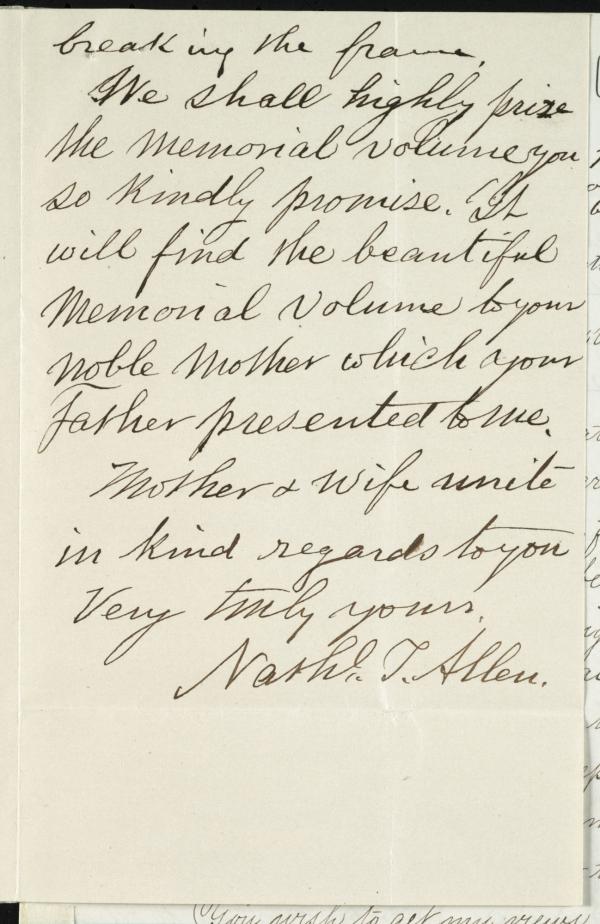 breaking the frame.
We shall highly prize
the Memorial volume you
so kindly promise. It
will find the beautiful
Memorial Volume to your
noble Mother which your
Father presented to me.
Mother & Wife unite
in kind regards to you
Very truly yours.
Nathl. T. Allen.
(You wish to get my views